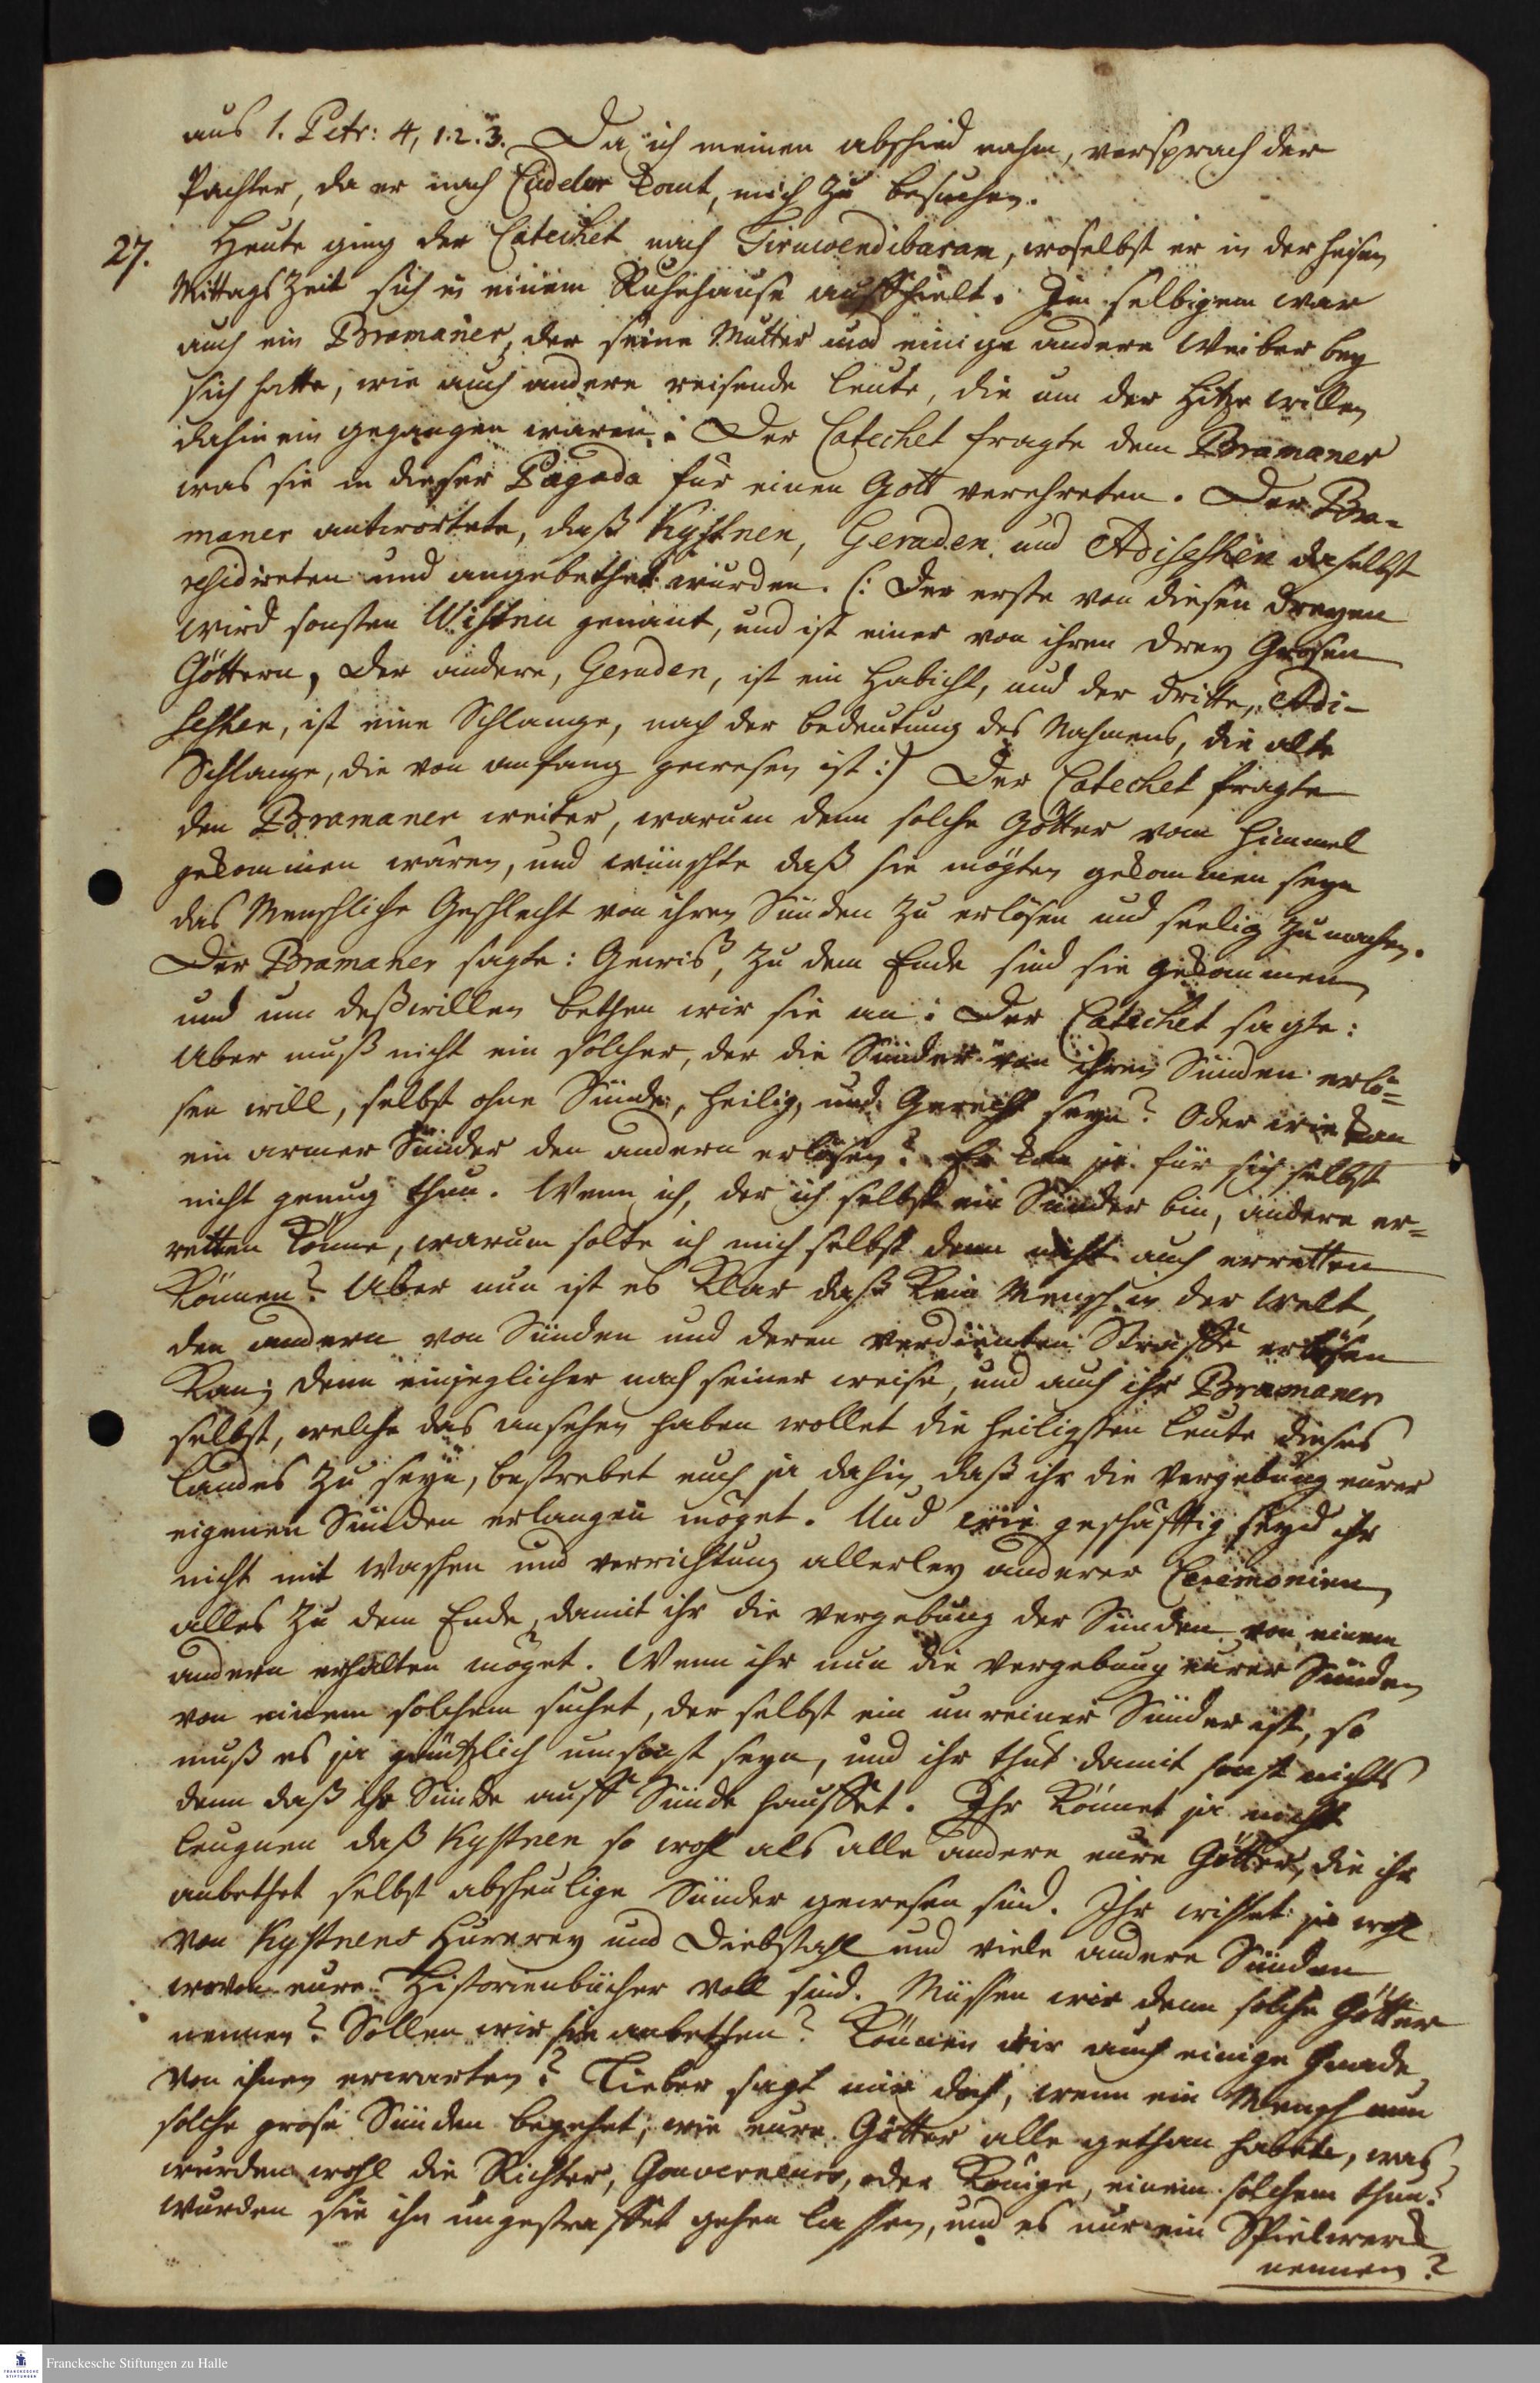 aus 1. Petr: 4, 1. 2. 3. Da ich meinen abschied nahm, versprach der
Pachter, da er nach Cudelur komt, mich zu besuchen.
27. Heute ging der Catechet nach Tiruwendibaram, woselbst er in der heisen
Mittags Zeit sich in einem Ruhehause aufhielt. Im selbigem war
auch ein Bramaner, der seine Mutter und einige andere Weiber bey
sich hatte, wie auch andere reisende Leute, die um der Hitze willen
dahinein gegangen waren. Der Catechet fragte dem Bramaner
was sie in dieser Pagoda für einen Gott verehreten. Der Bra-
maner antwortete, daß Kystnen, Geraden und Adiseschen daselbst
residireten und angebethet wurden. (: Der erste von diesen dreyen
wird sonsten Wistnu genant, und ist einer von ihren drey Grosen
Göttern, der andere, Geraden, ist ein Habicht, und der dritte, Adi-
seschen, ist eine Schlange, nach der bedeutung des Nahmens, die alte
Schlange, die von anfang gewesen ist :) Der Catechet fragte
den Bramaner weiter, warum denn solche Götter vom Himmel
gekommen wären, und wünschte daß sie mögten gekommen seyn
das Menschliche Geschlecht von ihren Sünden zu erlösen und seelig zu machen.
Der Bramaner sagte: Gewiß, zu dem Ende sind sie gekommen
und um deßwillen bethen wir sie an. Der Catechet sagte:
Aber muß nicht ein solcher, der die Sünder von ihren Sünden erlö-
sen will, selbst ohne Sünde, heilig, und Gerecht seyn? Oder wie kan
ein armer Sünder den andern erlösen? Er kan ja für sich selbst
nicht genug thun. Wenn ich, der ich selbst ein Sünder bin, andere er-
retten könne, warum solte ich mich selbst denn nicht auch erretten
können? Aber nun ist es klar daß kein Mensch in der Welt,
den andern von Sünden und deren verdienten Straffe erlösen
kan; denn einjeglicher nach seiner weise, und auch ihr Bramaner
selbst, welche das ansehen haben wollet die heiligsten Leute dieses
Landes zu seyn, bestrebet euch ja dahin, daß ihr die Vergebung eurer
eigenen Sünden erlangen möget. Und wie geschäfftig seyd ihr
nicht mit Waschen und verrichtung allerley anderer Ceremonien,
alles zu dem Ende, damit ihr die vergebung der Sünden von einem
andern erhalten möget. Wenn ihr nun die vergebung eurer Sünden
von einem solchem suchet, der selbst ein unreiner Sünder ist, so
muß es ja gäntzlich umsonst seyn, und ihr thut damit sonst nichts
denn daß ihr Sünde auff Sünde hauffet. Ihr könnet ja nicht
leugnen daß Kystnen so wohl als alle andere eure Götter, die ihr
anbethet selbst abscheulige Sünder gewesen sind. Ihr wisset ja wohl
von Kystnens Hurerey und Diebstahl und viele andere Sünden
wovon eure Historienbücher voll sind. Müssen wir denn solche Götter
nennen? Sollen wir sie anbethen? Können wir auch einige Gnade
von ihnen erwarten? Lieber sagt mir doch, wenn ein Mensch nun
solche grose Sünden begehet, wie eure Götter alle gethan haben, was
würden wohl die Richter, Gouverneurs, oder Könige, einem solchem thun?
Würden sie ihn ungestraffet gehen lassen, und es nur ein Spielwerck
nennen?
Franckesche Stiftungen zu Halle
FRANCKESCHE
STIFTUNGEN